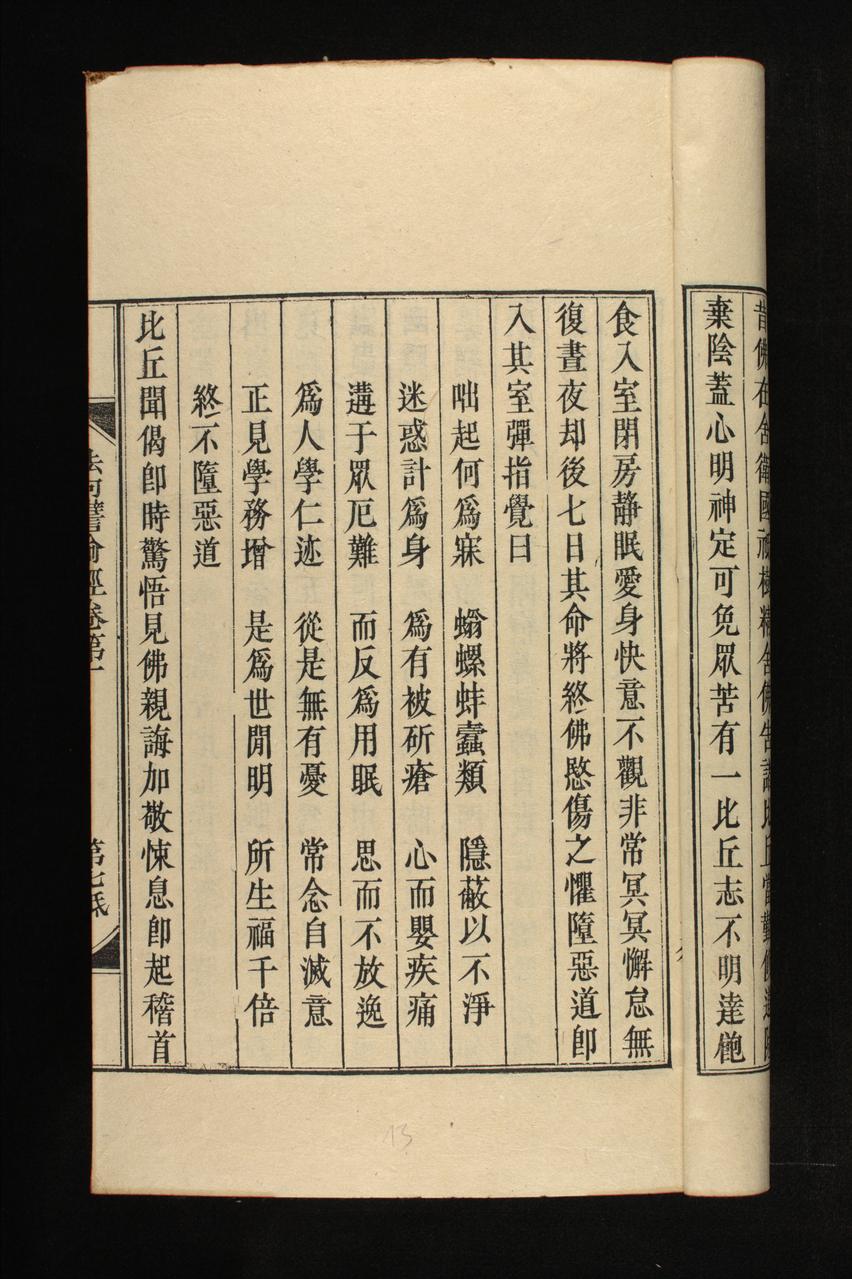 昔佛在舍衛國祇樹精舍佛告諸比丘當勤修道除
棄陰蓋心明神定可免眾苦有一比丘志不明達飽
食入室閉房靜眠愛身快意不觀非常冥冥懈怠無
復晝夜却後七日其命將終佛愍傷之懼墮惡道卽
入其室彈指覺曰
咄起何爲寐　螉螺蚌蠹類　隱蔽以不淨
迷惑計爲身　爲有被斫瘡　心而嬰疾痛
遘于眾厄難　而反爲用眠　思而不放逸
爲人學仁迹　從是無有憂　常念自滅意
正見學務增　是爲世間明　所生福千倍
終不墮惡道
比丘聞偈卽時驚悟見佛親誨加敬悚息卽起稽首
法句譬喻經卷第一　第七紙
13